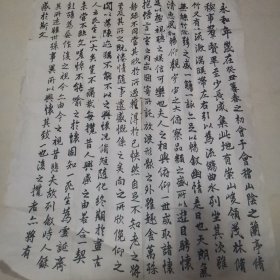 永和九年歲在癸丑暮春之初會于會稽山陰之蘭亭脩
禊事也群賢畢至少長咸集此地有崇山峻領茂林脩
竹又有清流激湍映帶左右引以為流觴曲水列坐其次雖
無絲竹管弦之盛一觴一詠亦足以暢敘幽情是日也天朗氣
清惠風和暢仰觀宇宙之大俯察品類之盛所以遊目騁懷
足以極視聽之娛信可樂也夫人之相與俯仰一世或取諸懷
抱悟言一室之內或因寄所託放浪形骸之外雖趣舍萬殊
靜躁不同當其欣於所遇暫得於己快然自足不知老之將
至及其所之既惓情隨事遷感慨係之矣向之所欣俛仰之
間以為陳迹猶不能不以之興懷況脩短隨化終期於盡古
人云死生亦大矣豈不痛哉每攬昔人興感之由若合一契
未嘗不臨文嗟悼不能喻之於懷固知一死生為虛誕齊
彭殤為妄作後之視今亦由今之視昔悲夫故列敘時人錄
其所述雖世殊事異所以興懷其致一也後之攬者亦將有
感於斯文